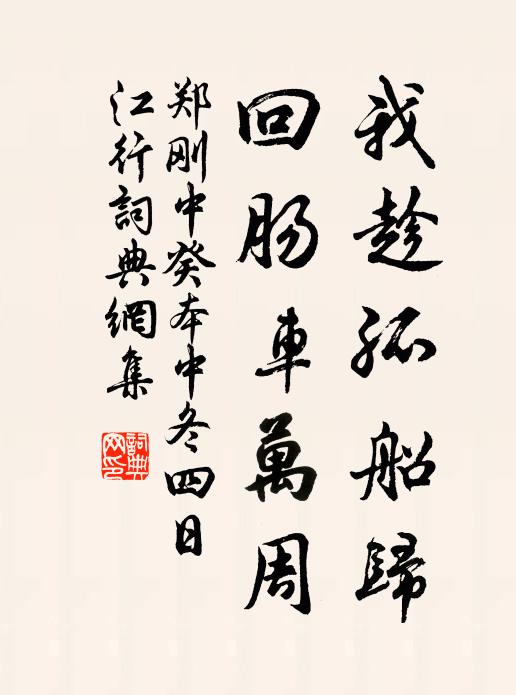 我趁孤船歸
回肠車萬周
郑刚中癸本中冬四日
江行詞典網集
詞典网印